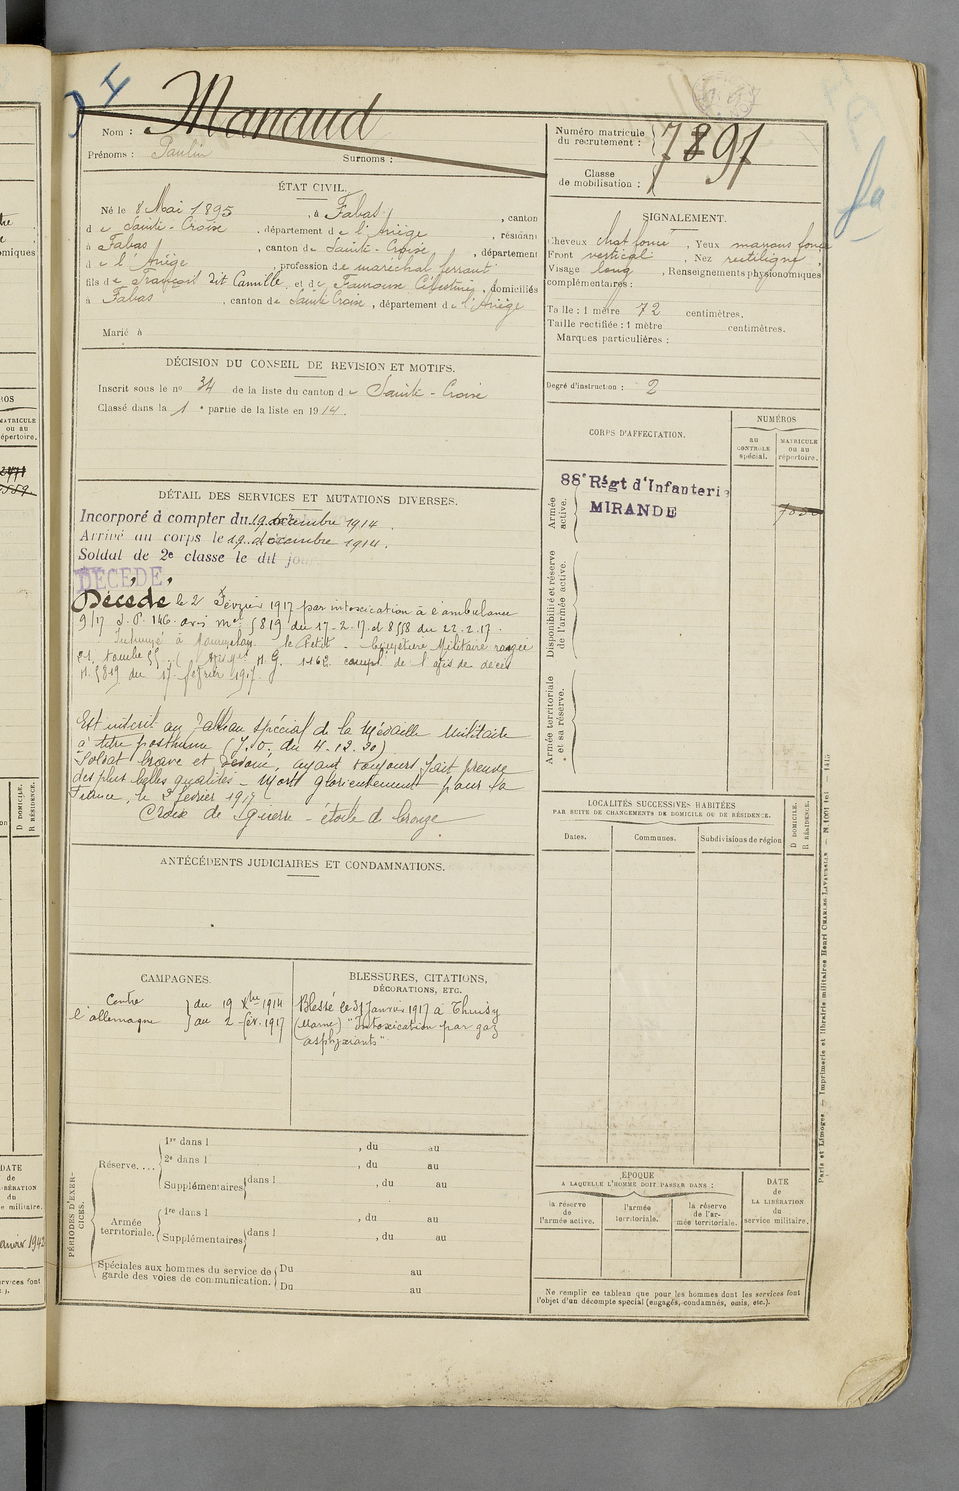 4
Nom : Manaud
Prénoms : Paulin Surnoms :
Numéro matricule du recrutement : 7897
Classe de mobilisation :
ÉTAT CIVIL.
Né le 8 Mai 1895, à Fabas, canton
de Sainte-Croise, département de l'Ariège, résidant
à Fabas, canton de Sainte-Croise, département
de l'Ariège, profession de maréchal ferrant
fils de François dit Camille et de, domiciliés
à Fabas, canton de Sainte Croise, département de l'Ariège
Marié à
SIGNALEMENT.
Cheveux chat foncé, Yeux marrons foncé
Front vertical, Nez rectiligne,
Visage long, Renseignements physionomiques
complémentaires :
Taille : 1 mètre 72 centimètres.
Taille rectifiée : 1 mètre centimètres.
Marques particulières :
Degré d'instruction : 2
DÉCISION DU CONSEIL DE REVISION ET MOTIFS.
Inscrit sous le nº 34 de la liste du canton de Sainte-Croise
Classé dans la 1e partie de la liste en 1914.
CORPS D'AFFECTATION.
NUMÉROS
au CONTROLE spécial.
MATRICULE ou au répertoire.
Armée active.
88e Régt d'Infanterie
MIRANDE
Disponibilité et réserve de l'armée active.
Armée territoriale et sa réserve.
DÉTAIL DES SERVICES ET MUTATIONS DIVERSES.
Incorporé à compter du 19 décembre 1914.
Arrivé au corps le 19 décembre 1914.
Soldat de 2e classe le dit jour
DÉCÉDÉ
Décédé le 2 Février 1917 par intoxication à l'ambulance
9/17 S.P. 146. avis mel 5819 du 17-2-17 et 8558 du 22-2-17.
Inhumé à Mourmelon le Petit - Cimetière Militaire rangée
21 tombe 55. M.G. 1162 compl. de l'avis de décès
N. 5819 du 17 février 1917.
Est inscrit au Tableau spécial de la Médaille Militaire
à titre posthume (J.O. du 4.12.20)
"Soldat brave et dévoué, ayant toujours fait preuve
des plus belles qualités - Mort glorieusement pour la
France, le 2 février 1917
Croix de Guerre - étoile de bronze
ANTÉCÉDENTS JUDICIAIRES ET CONDAMNATIONS.
LOCALITÉS SUCCESSIVES HABITÉES
PAR SUITE DE CHANGEMENTS DE DOMICILE OU DE RÉSIDENCE.
Dates. Communes. Subdivisions de région
D DOMICILE. R RÉSIDENCE.
CAMPAGNES.
Contre l'allemagne
du 19 Xbre 1914
au 2 fév. 1917
BLESSURES, CITATIONS,
DÉCORATIONS, ETC.
Blessé le 31 Janvier 1917 à Thuisy
(Marne) "Intoxication par gaz
asphyxiants".
PÉRIODES D'EXERCICES.
Réserve....
1re dans l , du au
2e dans l , du au
Supplémentaires dans l , du au
Armée territoriale.
1re dans l , du au
Supplémentaires dans l , du au
Spéciales aux hommes du service de garde des voies de communication.
Du au
Du au
ÉPOQUE
A LAQUELLE L'HOMME DOIT PASSER DANS :
la réserve de l'armée active.
l'armée territoriale.
la réserve de l'armée territoriale.
DATE de LA LIBÉRATION du service militaire.
Ne remplir ce tableau que pour les hommes dont les services font
l'objet d'un décompte spécial (engagés, condamnés, omis, etc.).
Paris et Limoges. — Imprimerie et librairie militaires Henri CHARLES-LAVAUZELLE